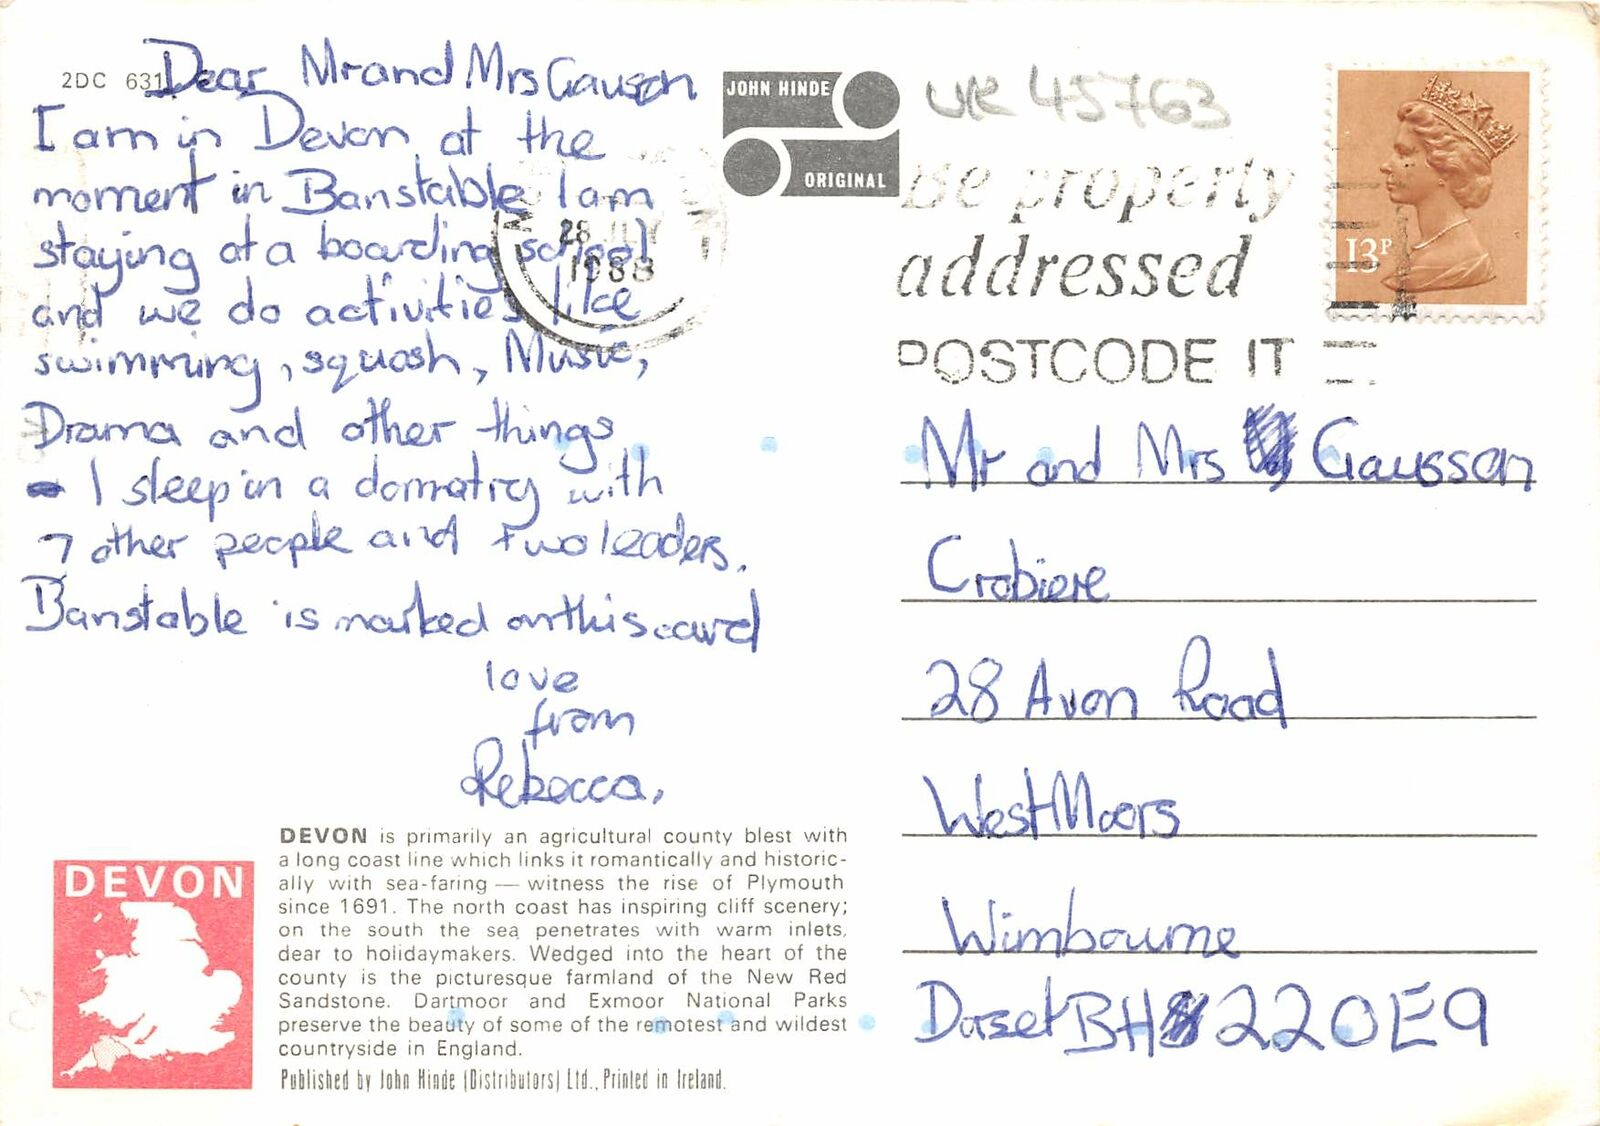 2DC 631
Dear Mr and Mrs Gausson
I am in Devon at the
moment in Banstable I am
staying at a boarding school
and we do activities like
swimming, squash, Music,
Drama and other things
I sleep in a domatry with
7 other people and two leaders.
Banstable is marked on this card
love
from
Rebecca,
DEVON
DEVON is primarily an agricultural county blest with
a long coast line which links it romantically and historic-
ally with sea-faring — witness the rise of Plymouth
since 1691. The north coast has inspiring cliff scenery;
on the south the sea penetrates with warm inlets,
dear to holidaymakers. Wedged into the heart of the
county is the picturesque farmland of the New Red
Sandstone. Dartmoor and Exmoor National Parks
preserve the beauty of some of the remotest and wildest
countryside in England.
Published by John Hinde (Distributors) Ltd., Printed in Ireland.
JOHN HINDE
ORIGINAL
UK 45763
28 JLY
1988
Be properly
addressed
POSTCODE IT
13P
Mr and Mrs Gausson
Crobiere
28 Avon Road
West Moors
Wimbourne
Dorset BH22 0E9